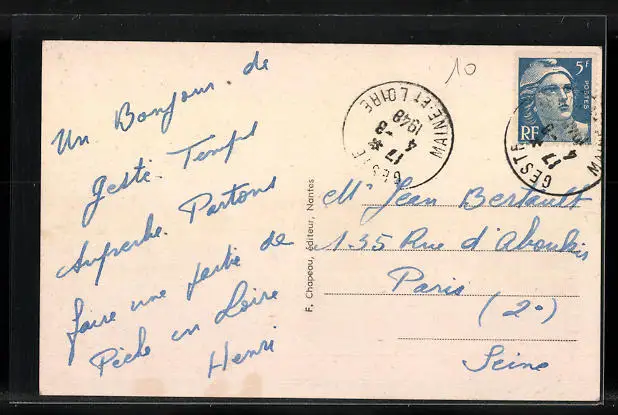 Un Bonjour de
Gesté. Temps
superbe. Partons
faire une partie de
Pêche en Loire
Henri
F. Chapeau, éditeur, Nantes
10
GESTÉ
MAINE-ET-LOIRE
17 -8
4
1948
5F
POSTES
RF
GESTÉ
MAINE
17 -8
4
Mr Jean Bertault
135 Rue d'Aboukir
Paris
(2e)
Seine